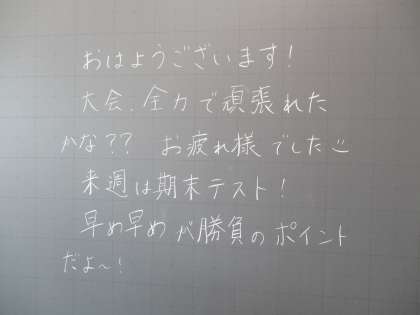 おはようございます！
大会、全力で頑張れた
かな？？ お疲れ様でした
来週は期末テスト！
早め早めが勝負のポイント
だよ〜！